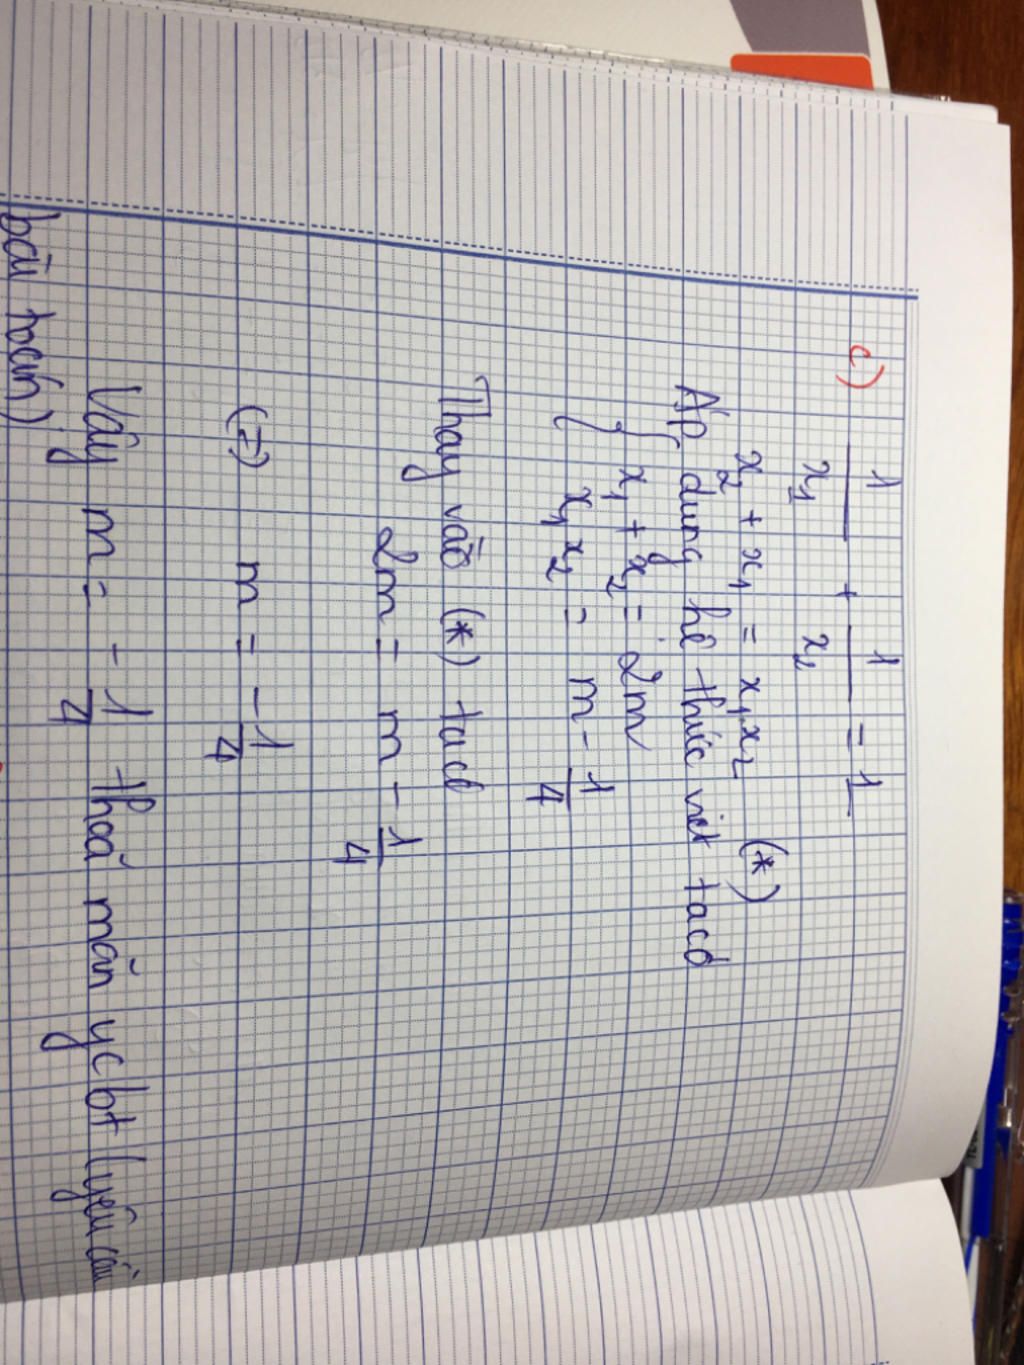 c) 1/x₁ + 1/x₂ = 1
x₂ + x₁ = x₁x₂ (*)
Áp dụng hệ thức viet ta có
{ x₁ + x₂ = 2m
x₁x₂ = m - 1/4
Thay vào (*) ta có
2m = m - 1/4
(=) m = -1/4
Vậy m = -1/4 thoả mãn ycbt (yêu cầu
bài toán)